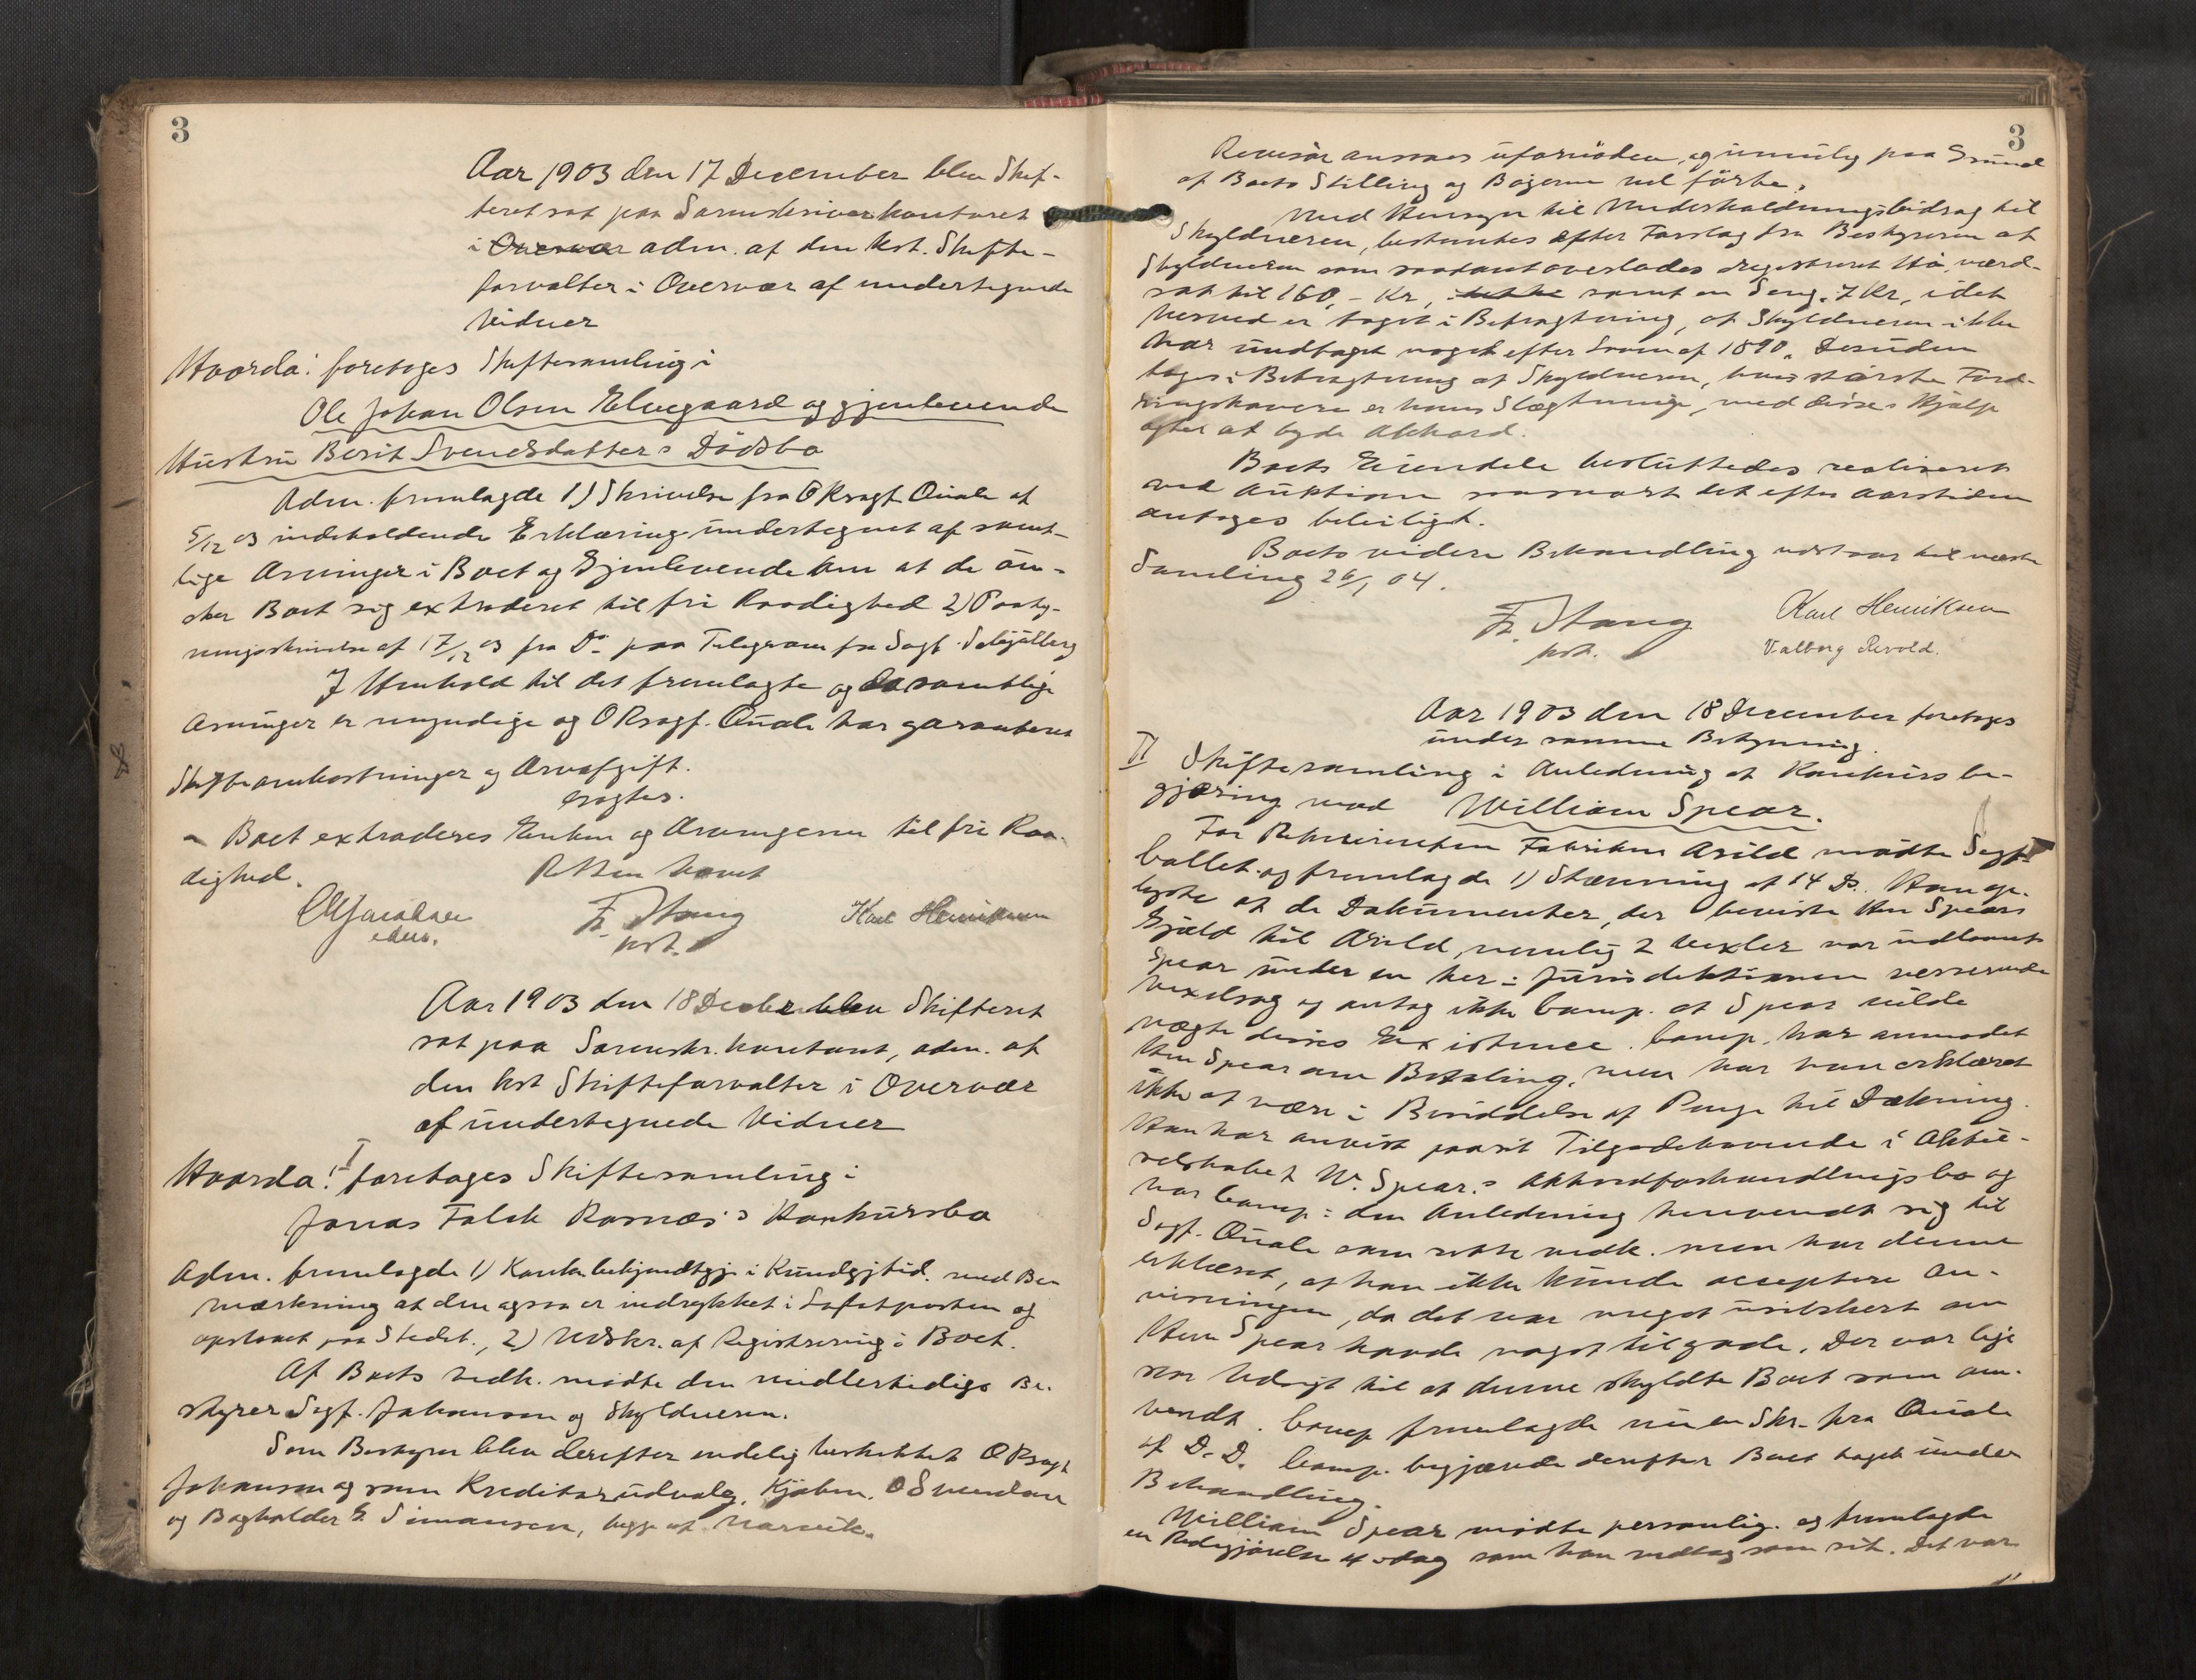 3
Aar 1903 den 17 December blev Skif-
teret sat paa Sorenskriverkontoret
i Overvær adm. af den kst. Skifte-
forvalter i Overvær af undertegnede
Vidner
Hvorda: foretoges Skiftesamling i
Ole Johan Olsen Elvegaard og gjenlevende
Hustru Berit Svendsdatters Dödsbo
Adm. fremlagde 1) Skrivelse fra ORsagf. Quale af
5/12 03 indeholdende Erklæring undertegnet af samt-
lige Arvinger i Boet og Gjenlevende om at de ön-
sker Boet sig extraderet til fri Raadighed 2) Paateg-
ningsskrivelse af 17/12 03 fra Do paa Telegram fra Sagf.
I Henhold til det fremlagte og da samtlige
Arvinger er myndige og ORsagf. Quale har garanteret
Skifteomkostninger og Arveafgift.
eragtes.
Boet extraderes Enken og Arvingerne til fri Raa-
dighed.
Retten hævet
F. Stang
kst.
Karl Henriksen
Aar 1903 den 18 Decbr blev Skifteret
sat paa Sorenskr. kontoret, adm. af
den kst Skifteforvalter i Overvær
af undertegnede Vidner
Hvorda: I foretoges Skiftesamling i
Jonas Falck Rasnæs's Konkursbo
Adm. fremlagde 1) Konk. bekjendtgj. i Kundgjtid. med Be-
mærkning at den ogsaa er indrykket i Lofotposten og
opslaaet paa Stedet., 2) Udskr. af Registrering i Boet.
Af Boets vedk. mödte den midlertidige Be-
styrer Sagf. Johanson og Skyldneren.
Som Bestyrer blev derefter endelig beskikket ORsagf.
Johanson og som Kreditorudvalg, Kjöbm. O Svendsen
og Bogholder E. Simonsen, begge af Narvik.
3
Revisör ansaaes ufornöden og umulig paa Grund
af Boets Stilling og Bögerne vel förte.
Med Hensyn til Underholdningsbidrag til
Skyldneren, bestemtes efter Forslag fra Bestyreren at
Skyldneren som saadant overlades registreret Hö, værd-
sat til 160,- Kr, samt en Seng, 7 Kr, idet
herved er taget i Betragtning, at Skyldneren ikke
har undtaget noget efter Loven af 1890. Desuden
toges i Betragtning at Skyldneren, hvis störste Ford-
ringshavere er hans Slægtninge, med disses Hjælp
agter at byde Akkord.
Boets Eiendele besluttedes realiseret
ved Auktion saasnart det efter Aarstiden
antages beleiligt.
Boets videre Behandling udstaar til næste
Samling 26/1 04.
F. Stang
kst.
Karl Henriksen
Valborg Revold.
Aar 1903 den 18 December foretoges
under samme Bestyrning.
II Skiftesamling i Anledning af Konkursbe-
gjæring mod William Spear.
For Rekvirenten Fabrikken Arild mödte Sagf.
Collet og fremlagde 1) Stævning af 14 Ds. Han op-
lyste at de Dokumenter, der beviste Hr Spears
Gjæld til Arild, nemlig 2 Vexler var udlaant
Spear under en her i Jurisdiktionen verserende
Vexelsag og antog ikke Comp. at Spear vilde
nægte disses Existence. Comp. har anmodet
Hr Spear om Betaling, men har han erklæret
ikke at være i Besiddelse af Penge til Dækning.
Han har anvist paa sit Tilgodehavende i Aktie-
selskabet W. Spear's Akkordforhandlingsbo og
har Comp. i den Anledning henvendt sig til
Sagf. Quale som rette vedk. men har denne
erklæret, at han ikke kunde acceptere An-
visningen, da det var meget usikkert om
Herr Spear havde noget tilgode. Der var lige
saa Udsigt til at denne skyldte Boet som om-
vendt. Comp fremlagde nu en Skr. fra Quale
af D.D. Comp. begjærede derefter Boet taget under
Behandling.
William Spear mödte personlig og fremlagde
en Redegjörelse af idag som han vedtog som sit. Det var